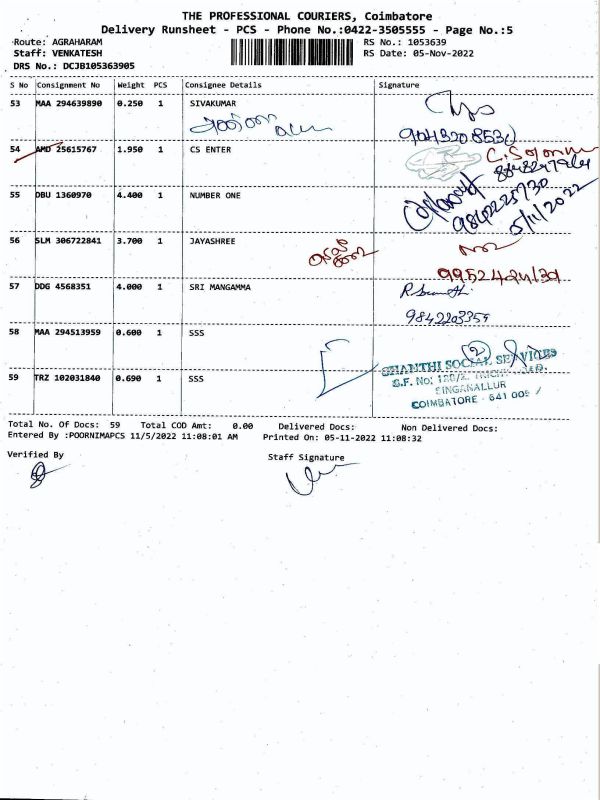 THE PROFESSIONAL COURIERS, Coimbatore
Delivery Runsheet - PCS - Phone No.:0422-3505555 - Page No.:5
Route: AGRAHARAM RS No.: 1053639
Staff: VENKATESH RS Date: 05-Nov-2022
DRS No.: DCJB105363905
S No Consignment No Weight PCS Consignee Details Signature
53 MAA 294639890 0.250 1 SIVAKUMAR
54 AMD 25615767 1.950 1 CS ENTER
55 DBU 1360970 4.400 1 NUMBER ONE
9842225730
5/11/2022
56 SLM 306722841 3.700 1 JAYASHREE
57 DDG 4568351 4.000 1 SRI MANGAMMA
9842203355
58 MAA 294513959 0.600 1 SSS
SHANTHI SOCIAL SERVICES
59 TRZ 102031840 0.690 1 SSS
SINGANALLUR
COIMBATORE - 641 005
Total No. Of Docs: 59 Total COD Amt: 0.00 Delivered Docs: Non Delivered Docs:
Entered By :POORNIMAPCS 11/5/2022 11:08:01 AM Printed On: 05-11-2022 11:08:32
Verified By Staff Signature